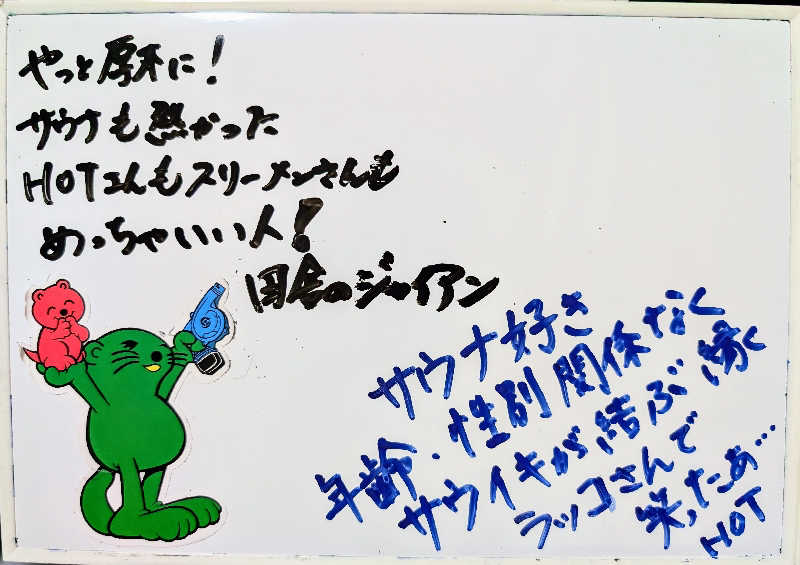 やっと厚木に!
サウナも熱かった
HOTさんもスリーメンさんも
めっちゃいい人!
田舎のジャイアン
サウナ好き
年齢・性別関係なく
サウイキが結ぶ縁く
ラッコさんで
笑ったぁ…
HOT